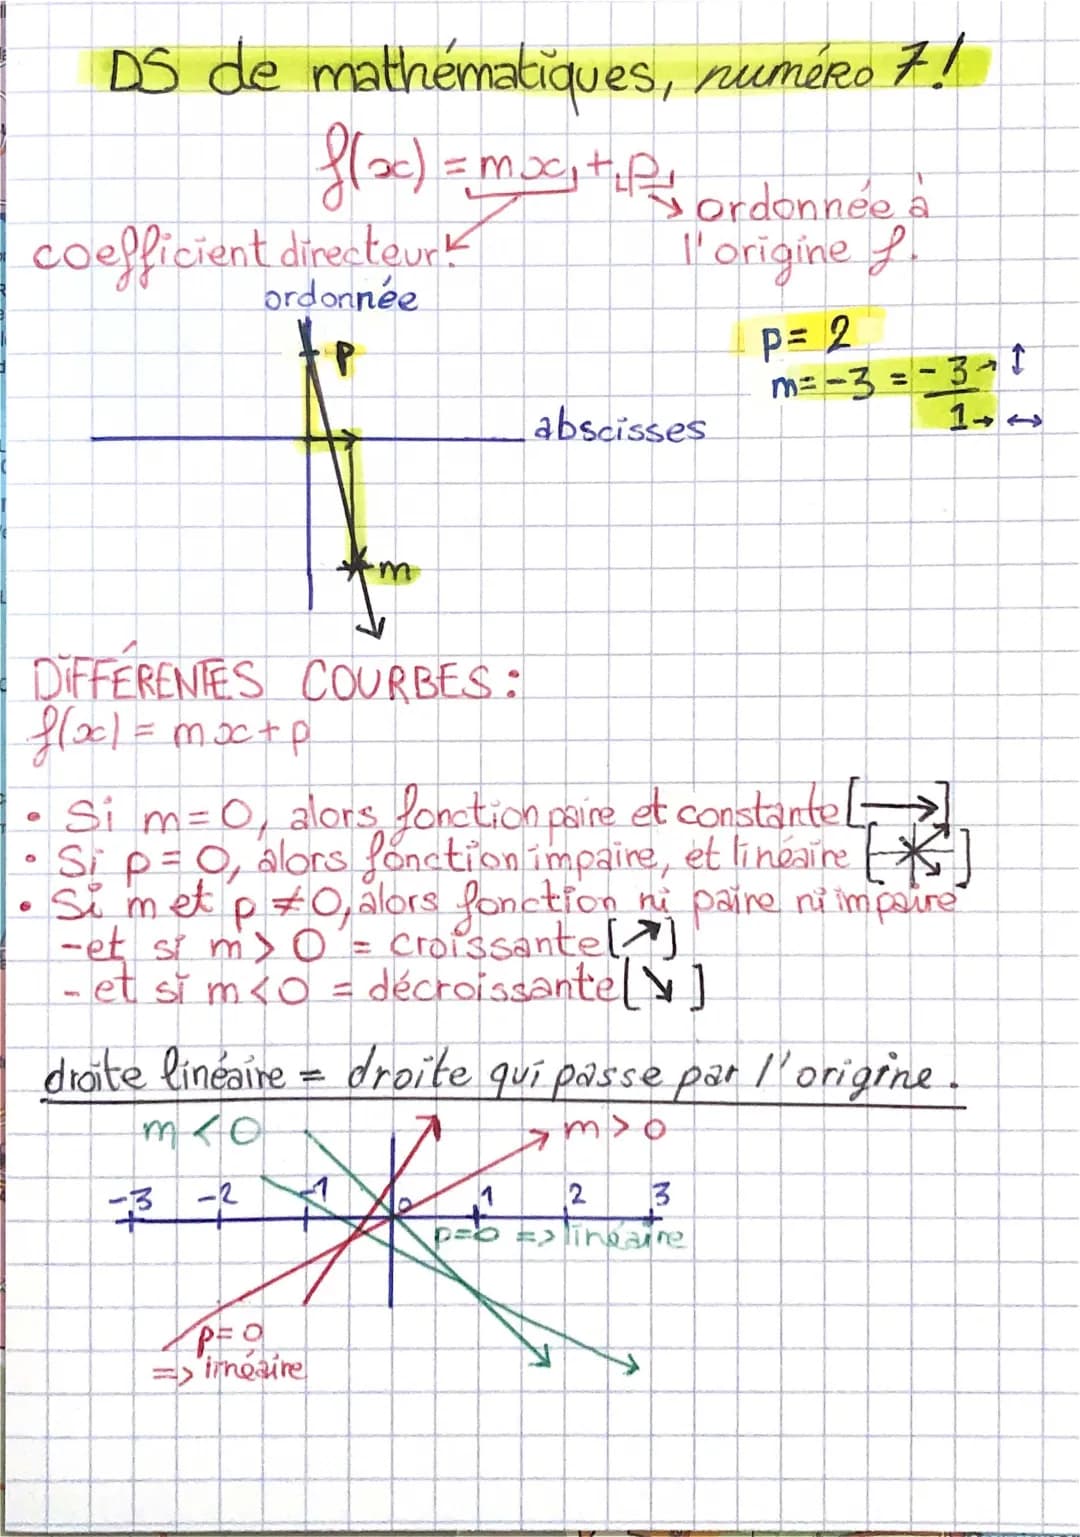 DS de mathématiques, numéro 7!
f(x) = mx + p
ordonnée à
l'origine f.
coefficient directeur!
ordonnée
p
p = 2
m = -3 = -3
1
abscisses
m
DIFFÉRENTES COURBES :
f(x) = mx + p
• Si m = 0, alors fonction paire et constante [→]
• Si p = 0, alors fonction impaire, et linéaire [ ]
• Si m et p ≠ 0, alors fonction ni paire ni impaire
- et si m > 0 = croissante [↗]
- et si m < 0 = décroissante [↘]
droite linéaire = droite qui passe par l'origine.
m < 0
m > 0
-3 -2 -1 0 1 2 3
p=0 => linéaire
p = 0
=> linéaire